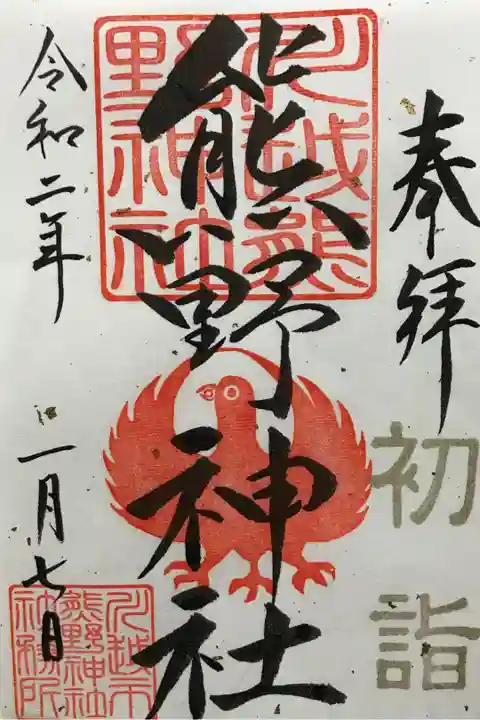 奉拝
初詣
熊野神社
川越熊野神社
令和二年
一月七日
川越市熊野神社社務所